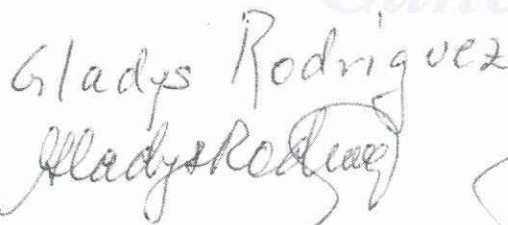 Gladys Rodriguez
Gladys Rodrig